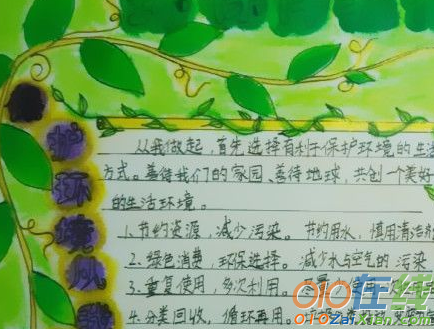 护环境从我
从我做起,首先选择有利于保护环境的生活
方式。善待我们的家园、善待地球,共创一个美好
的生活环境。
1.节约资源,减少污染。节约用水,慎用清洁剂
2.绿色消费,环保选择。减少水与空气的污染
3.重复使用,多次利用。尽量
4.分类回收,循环再用。
在线
Zai.Xianx.com